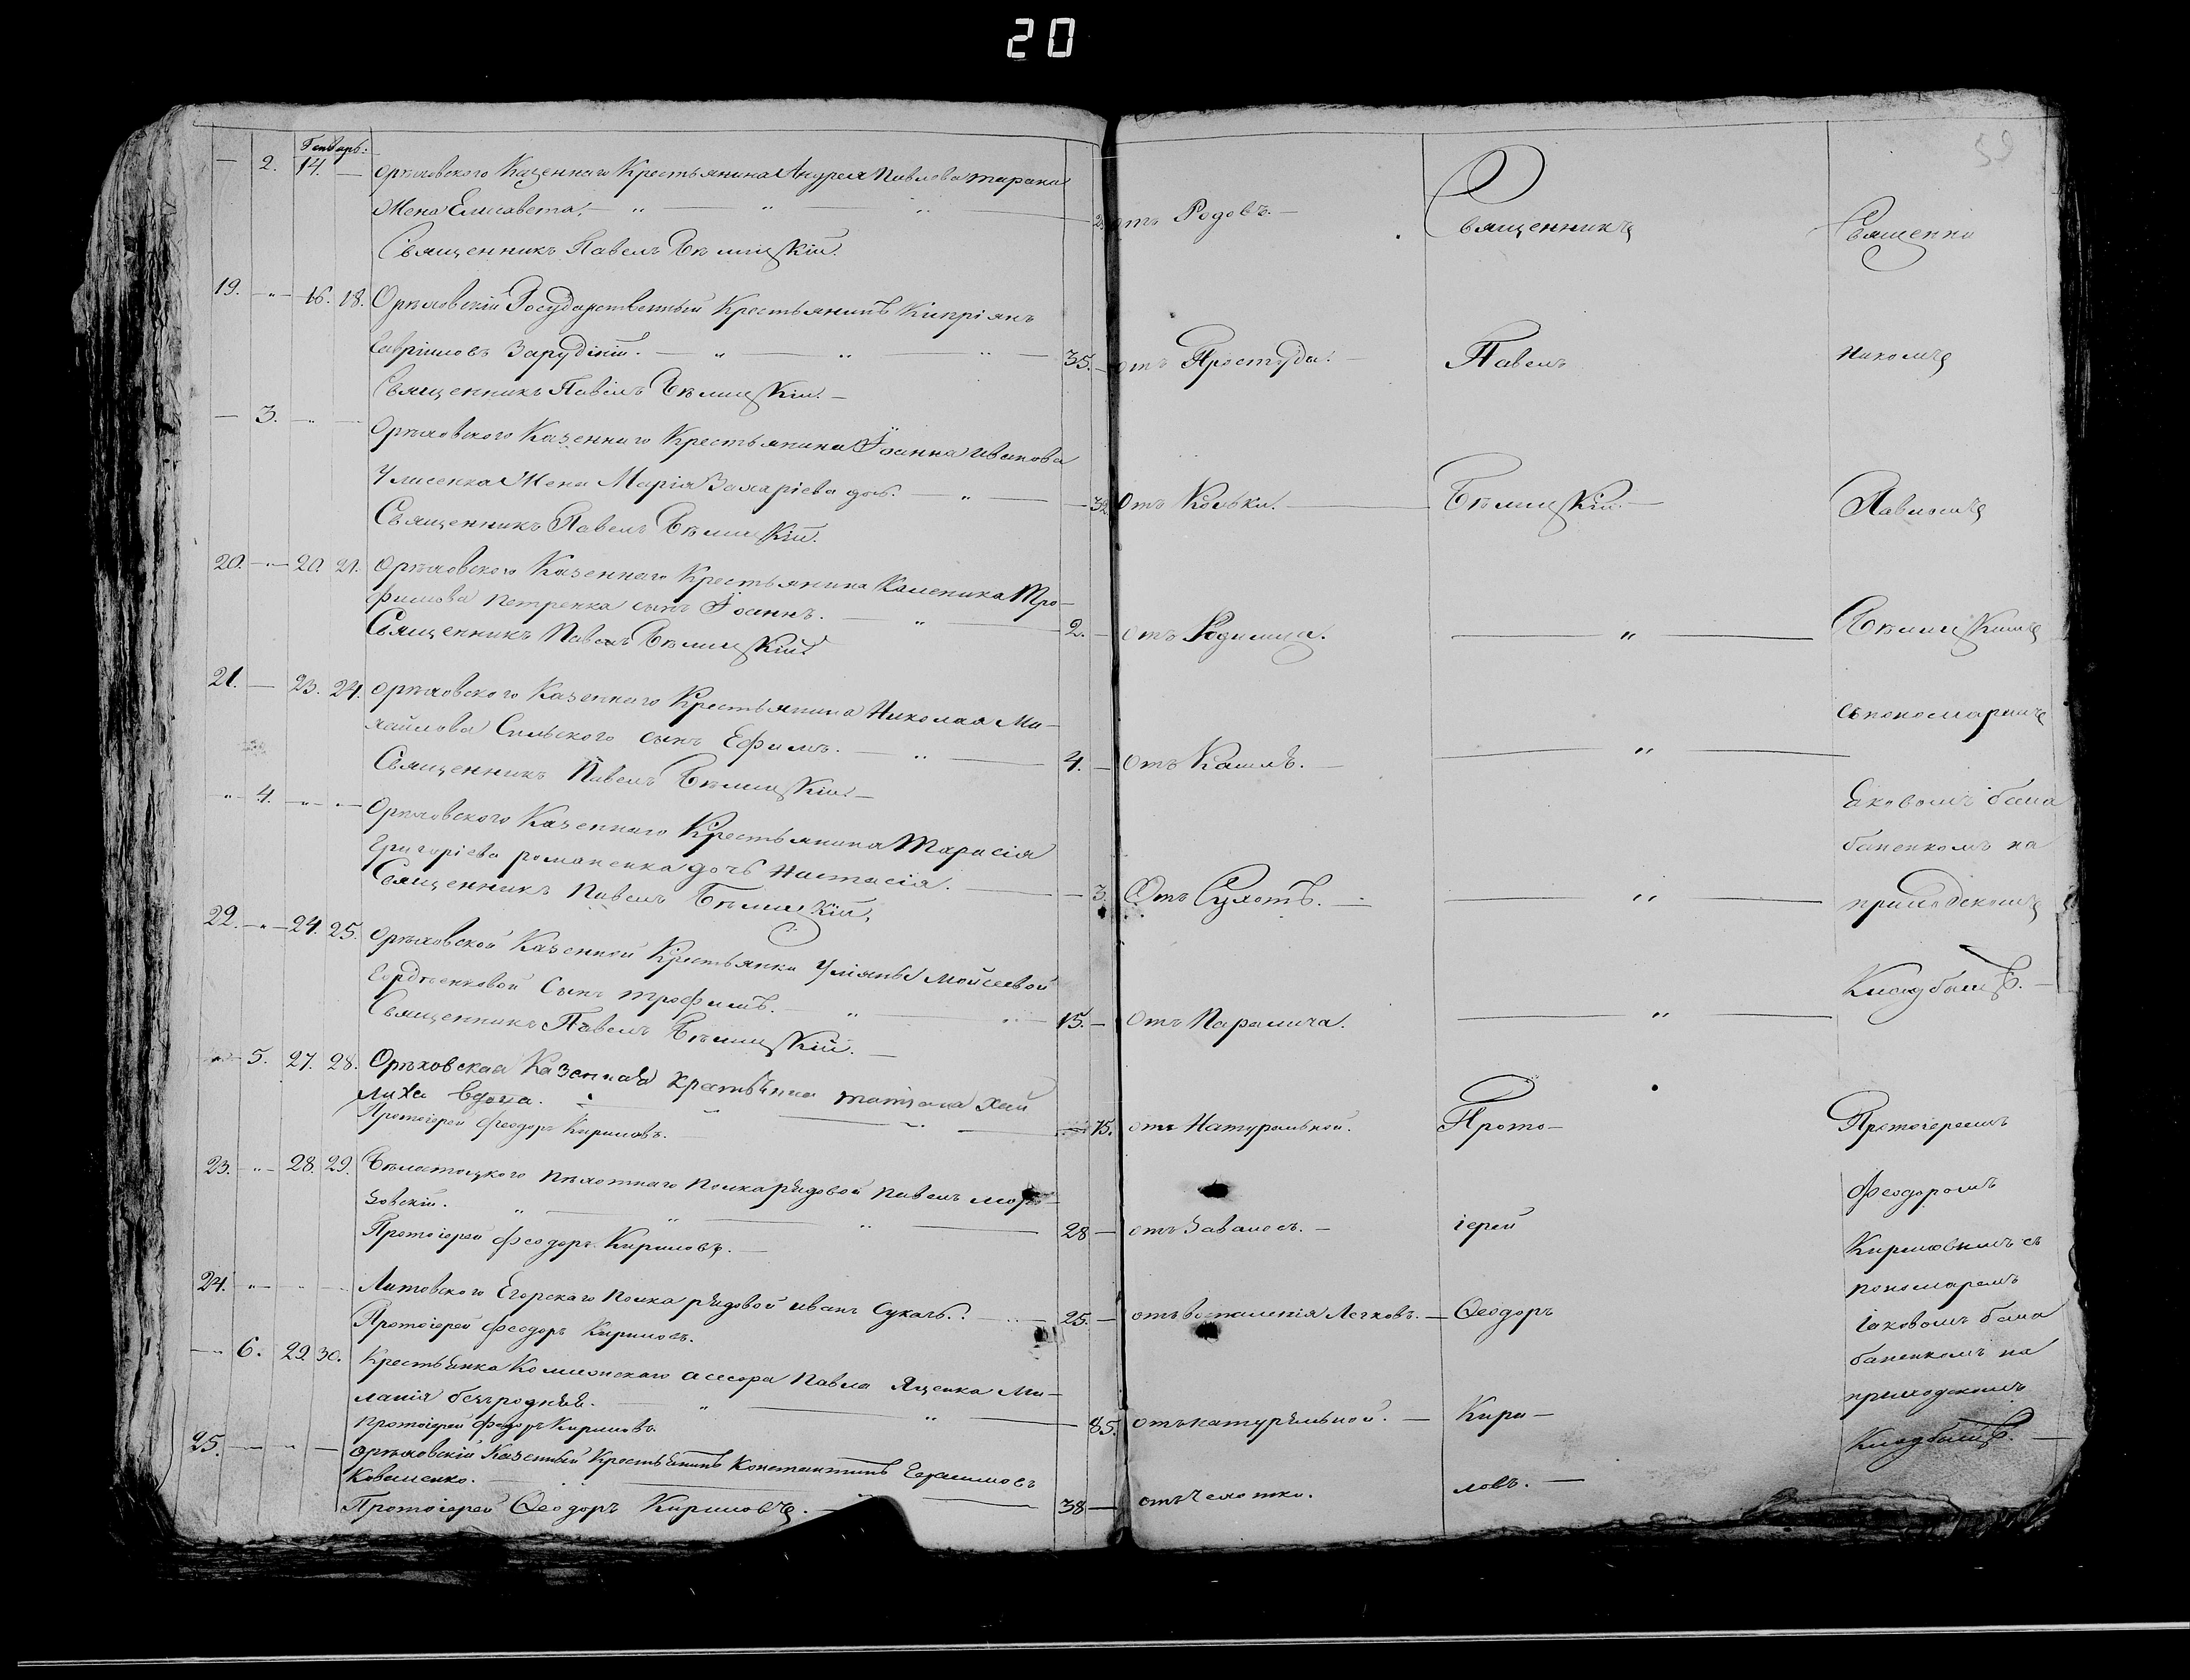 20
59
Генварь.
— 2. 14. — Орѣховского Казеннаго Крестьянина Андрея Павлова тарана
Жена Елисавета. — " — " — " — отъ Родовъ. — Священникъ Священни
Священникъ Павелъ Бѣлицкій.
19. — " — 16. 18. Орѣховскій Государственный Крестьянинъ Кипріянъ
Гавріиловъ Зарудній. — " — " — " — 35. — отъ Простуды. — Павелъ комъ
Священникъ Павелъ Бѣлицкій. —
— 3. — " — Орѣховского Казеннаго Крестьянина Іоанна Иванова
Улисенка Жена Марія Захаріева доч. — " — 32. отъ Кольки. — Бѣлицкій. — Павломъ
Священникъ Павелъ Бѣлицкій.
20. — " — 20. 21. Орѣховского Казеннаго Крестьянина Каленика Тро-
фимова петренка сынъ Іоаннъ. — " — 2. — отъ Родимца. — " — Бѣлицкимъ
Священникъ Павелъ Бѣлицкій.
21. — 23. 24. Орѣховского Казеннаго Крестьянина Николая Ми-
хайлова Сильского сынъ Ефимъ. — " — 4. — отъ Кашля. — " — съ пономаремъ
Священникъ Павелъ Бѣлицкій. —
" 4. — " — " — Орѣховского Казеннаго Крестьянина Тарасія Яковомъ бала
Григоріева романенка дочь Настасія. — 3. Отъ Сухотъ. — " — баненкомъ на
Священникъ Павелъ Бѣлицкій. приходскомъ
22. — " — 24. 25. Орѣховской Казенной Крестьянки Уліяны Мойсеевой Кладбищѣ. —
Гордѣенковой Сынъ трофимъ. — " — " — 15. — отъ Паралича. — " —
Священникъ Павелъ Бѣлицкій. —
" — 5. 27. 28. Орѣховская Казенная крестьянка татіана Хай
лиха вдова. — " — 75. отъ Натуральной. Прото- Протоіереемъ
Протоіерей Феодоръ Кириловъ. —
23. — " — 28. 29. Бѣлостоцкого пѣхотнаго полка рядовой павелъ моро- Феодоромъ
зовскій. " — " — " — 28 — отъ Завалосъ. — іерей Кириловымъ съ
Протоіерей Феодоръ Кириловъ. — пономаремъ
24. — " — " — Литовского Егорскаго полка рядовой иванъ Сукачъ. — 25. — отъ воспаленія Легковъ. — Ѳеодоръ Іаковомъ бала
Протоіерей Феодоръ Кириловъ.
— " 6. 29 30. Крестьянка Колежскаго асесора Павла Яценка Ми- баненкомъ на
ланія безъродняя. " — " — 85. отъ натуральной. — Кири- приходскомъ
Протоіерей Феодоръ Кириловъ.
25. — " — Орѣховскій Казенный Крестьянинъ Константинъ Герасимовъ Кладбищѣ. —
Коваленко. — 38 — отъ Чахотки. ловъ. —
Протоіерей Ѳеодоръ Кириловъ. —